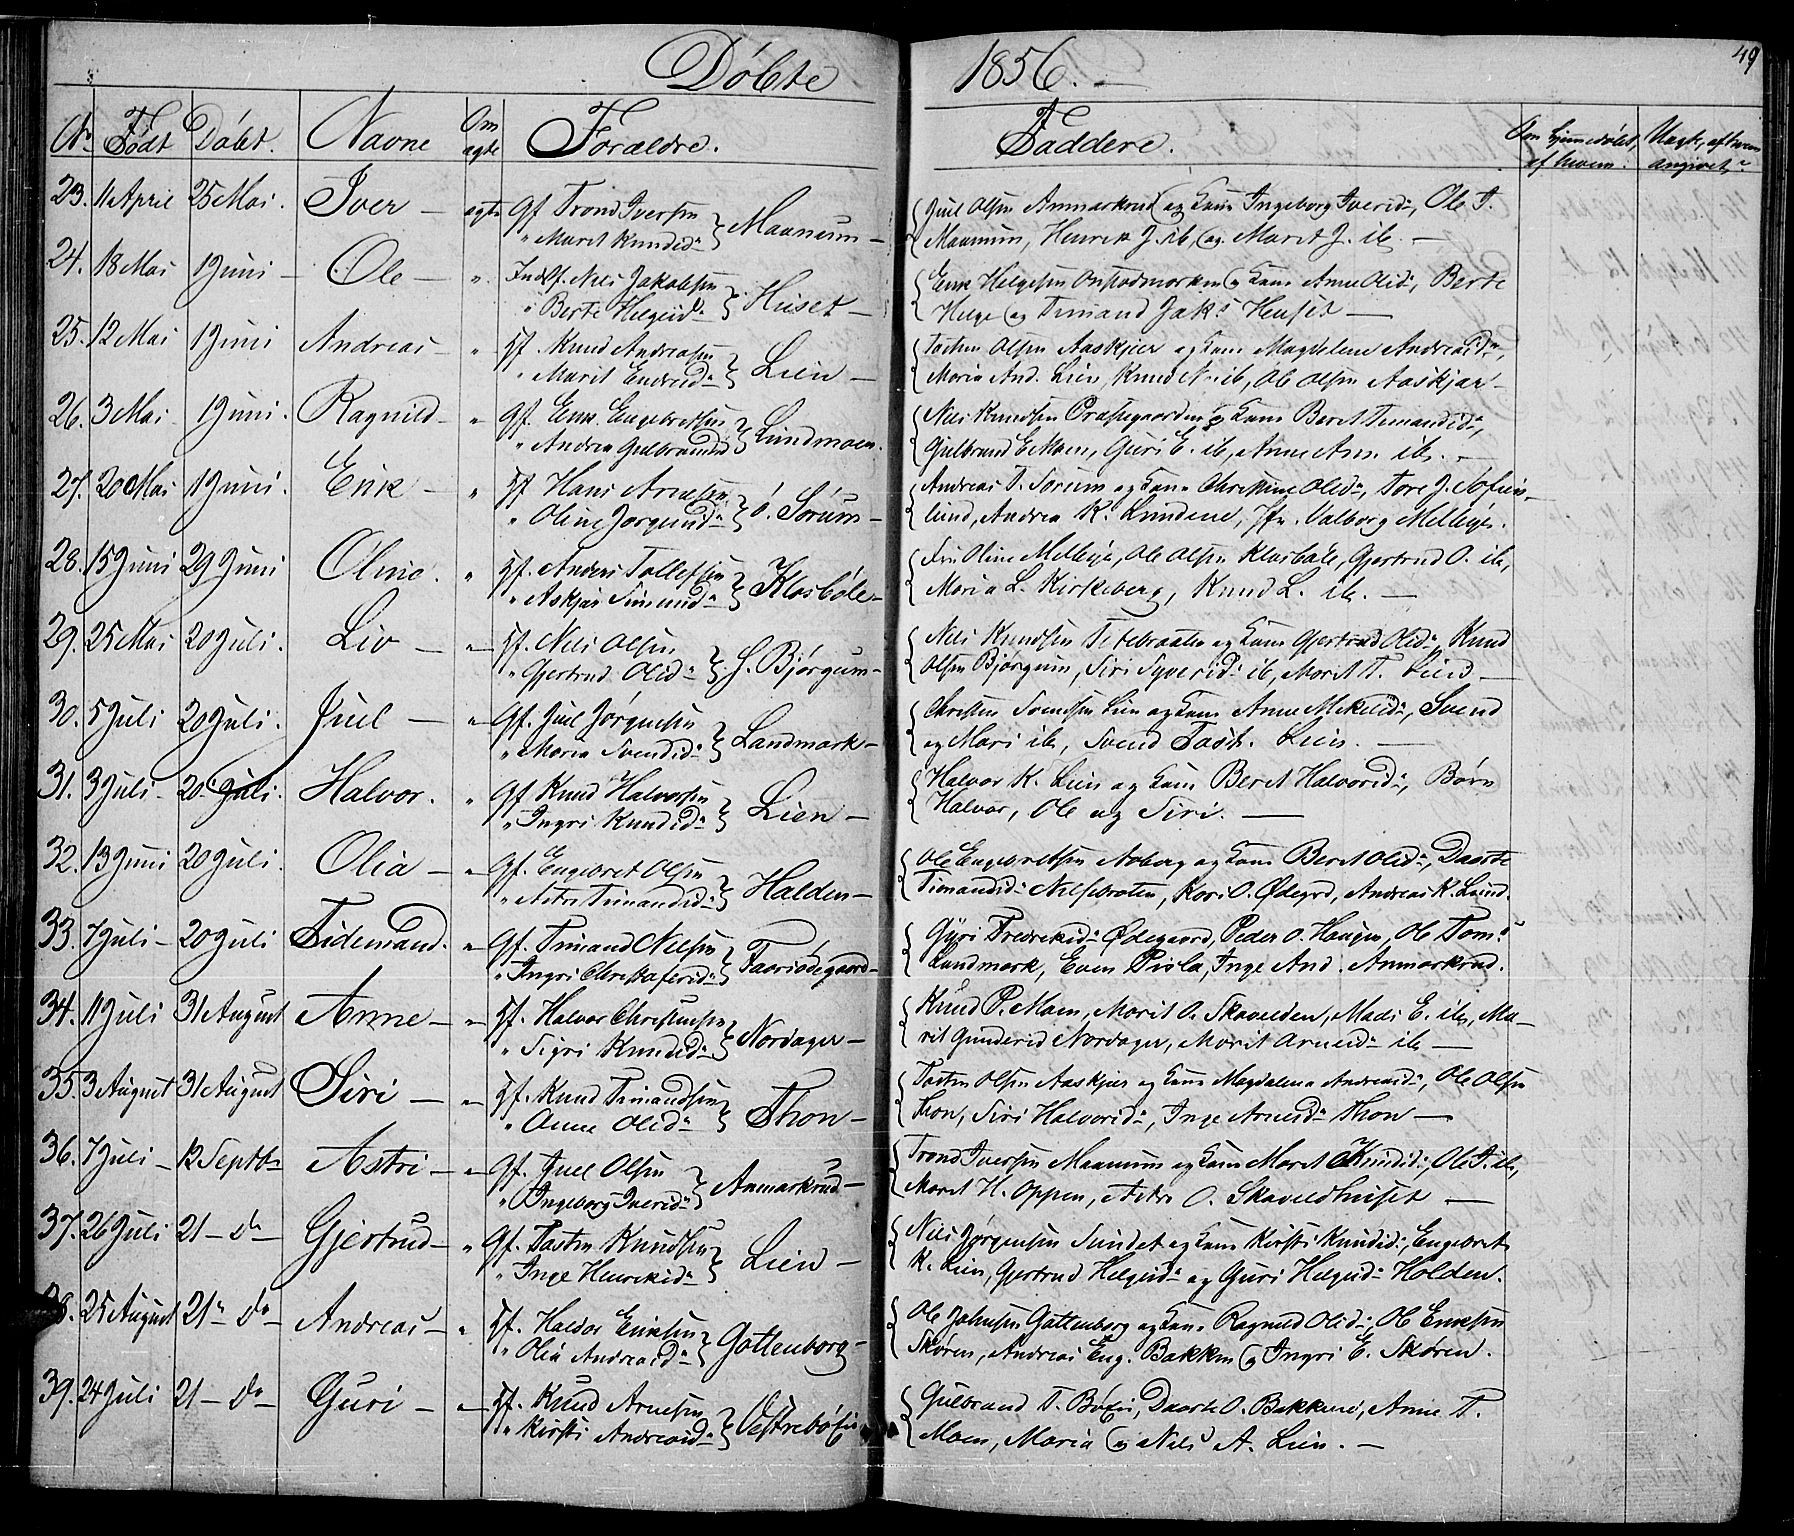 Döbte 1856. 49
No Födt Döbt. Navne Om ægte Forældre. Faddere. Om hjemmedöbt, af hvem. Uægte, af hvem angivet.
23. 11 April 25 Mai. Iver – ægte Gf Trond Iversen
" Marit Knudsd. } Maanum –
Juel Olsen Anmarkrud og Kone Ingeborg Iversd., Ole T.
Maanum, Henrik J. ib, og Marit J. ib. –
24. 18 Mai 1 Juni – Ole – " Inds. Gf. Nils Jakobsen
" Berte Helgesd. } Huset –
Erik Helgesen og Kone Anne Olsd., Berte
Helge og Timand Jak. Huset –
25. 12 Mai 1 Juni Andreas – " Gf. Knud Andreasen
" Marit Endresd. } Lien –
Tosten Olsen Aaskjær og Kone Magdelene Andreasd.,
Maria And. Lien, Knud N. ib, Ole Olsen Aaskjær –
26. 3 Mai 1 Juni. Ragnild – " Gf. Erik Engebretsen
" Andrea Gulbrandsd. } Lundmoen.
Nils Knudsen Præstegaarden og Kone Beret Timandsd.,
Gulbrand E. Moen, Guri E. ib, Anne Arn. ib. –
27. 20 Mai 1 Juni. Erik – " Gf Hans Arnesen
" Oline Jørgensd. } ö. Sørum –
Andreas T. Sørum og Kone Christine Olsd., Tore J. Sofien-
lund, Andrea K. Lundene, Jfr. Valborg Melbye.
28. 15 Juni 29 Juni Oline. " Gf. Anders Tollefsen
" Askjær Simensd. } Klosböle –
Frk Oline Melbye, Ole Olsen Klosböle, Gjertrud O. ib,
Maria L. Kirkeberg, Knud L. ib. –
29. 25 Mai 20 Juli. Liv – " Gf. Nils Olsen
" Gjertrud Olsd. } S. Bjørgum –
Nils Knudsen og Kone Gjertrud Olsd., Knud
Olsen Bjørgum, Siri Syversd. ib, Marit T. Lien –
30. 5 Juli 20 Juli. Juel – " Gf. Juel Jørgensen
" Maria Svendsd. } Landmark –
Christen Svendsen Lien og Kone Anne Mikkelsd., Svend
og Mari ib, Svend Tost. Lien. –
31. 3 Juli – 20 Juli. Halvor. " Gf Knud Halvorsen
" Ingri Knudsd. } Lien –
Halvor K. Lien og Kone Beret Halvorsd., Børn
Halvor, Ole og Siri. –
32. 13 Juni 20 Juli. Olia – " Gf. Engebret Olsen
" Astri Timandsd. } Halden –
Ole Engebretsen Aaberg og Kone Beret Olsd., Daarte
Timandsd. Nilsebraten, Kari O. Ødegrd, Andreas K. Lund.
33. 7 Juli – 20 Juli Tidemand. " Gf. Timand Nilsen
" Ingri Christofersd. } Faariødegaard –
Gyri Fredriksd. Ødegaard, Peder O. Haugen, Ole Tom.
Landmark, Even Pisla, Inge And. Anmarkrud.
34. 11 Juli 31 August Anne – " Gf. Halvor Christensen
" Sigri Knudsd. } Nordager –
Knud P. Moen, Marit O. Skavelden, Mads E. ib, Ma-
rit Gundersd Nordager, Marit Arnesd. ib –
35. 3 August 31 August Siri – " Gf. Knud Timandsen
" Anne Olsd. } Thon –
Tosten Olsen Aaskjær og Kone Magdalena Andreasd., Ole Olsen
Thon, Siri Halvorsd., Inge Arnesd. Thon –
36. 7 Juli – 12 Septbr Astri – " Gf. Juel Olsen
" Ingeborg Iversd. } Anmarkrud –
Trond Iversen Maanum og Kone Marit Knudsd., Ole T. ib,
Marit H. Oppen, Astri O. Skaveldhuset –
37. 26 Juli 21 – do – Gjertrud – " Gf. Tosten Knudsen
" Inge Henriksd. } Lien –
Nils Jørgensen Sundet og Kone Kirsti Knudsd., Engebret
K. Lien, Gjertrud Helgesd. og Guri Helgesd. Holden.
38. 25 August 21 – do Andreas – " Gf. Haldor Eriksen
" Olia Andreasd. } Gottenborg –
Ole Johnsen Gottenborg og Kone Ragnild Olsd., Ole Eriksen
Skøren, Andreas Eng. Bakken og Ingri E. Skøren.
39. 24 Juli 21 – do – Guri – " Gf. Knud Arnesen
" Kirsti Andreasd. } Vestrebøen
Gulbrand T. Bøen, Daarte O. Bakkene, Anne T.
Moen, Maria og Nils A. Lien. –